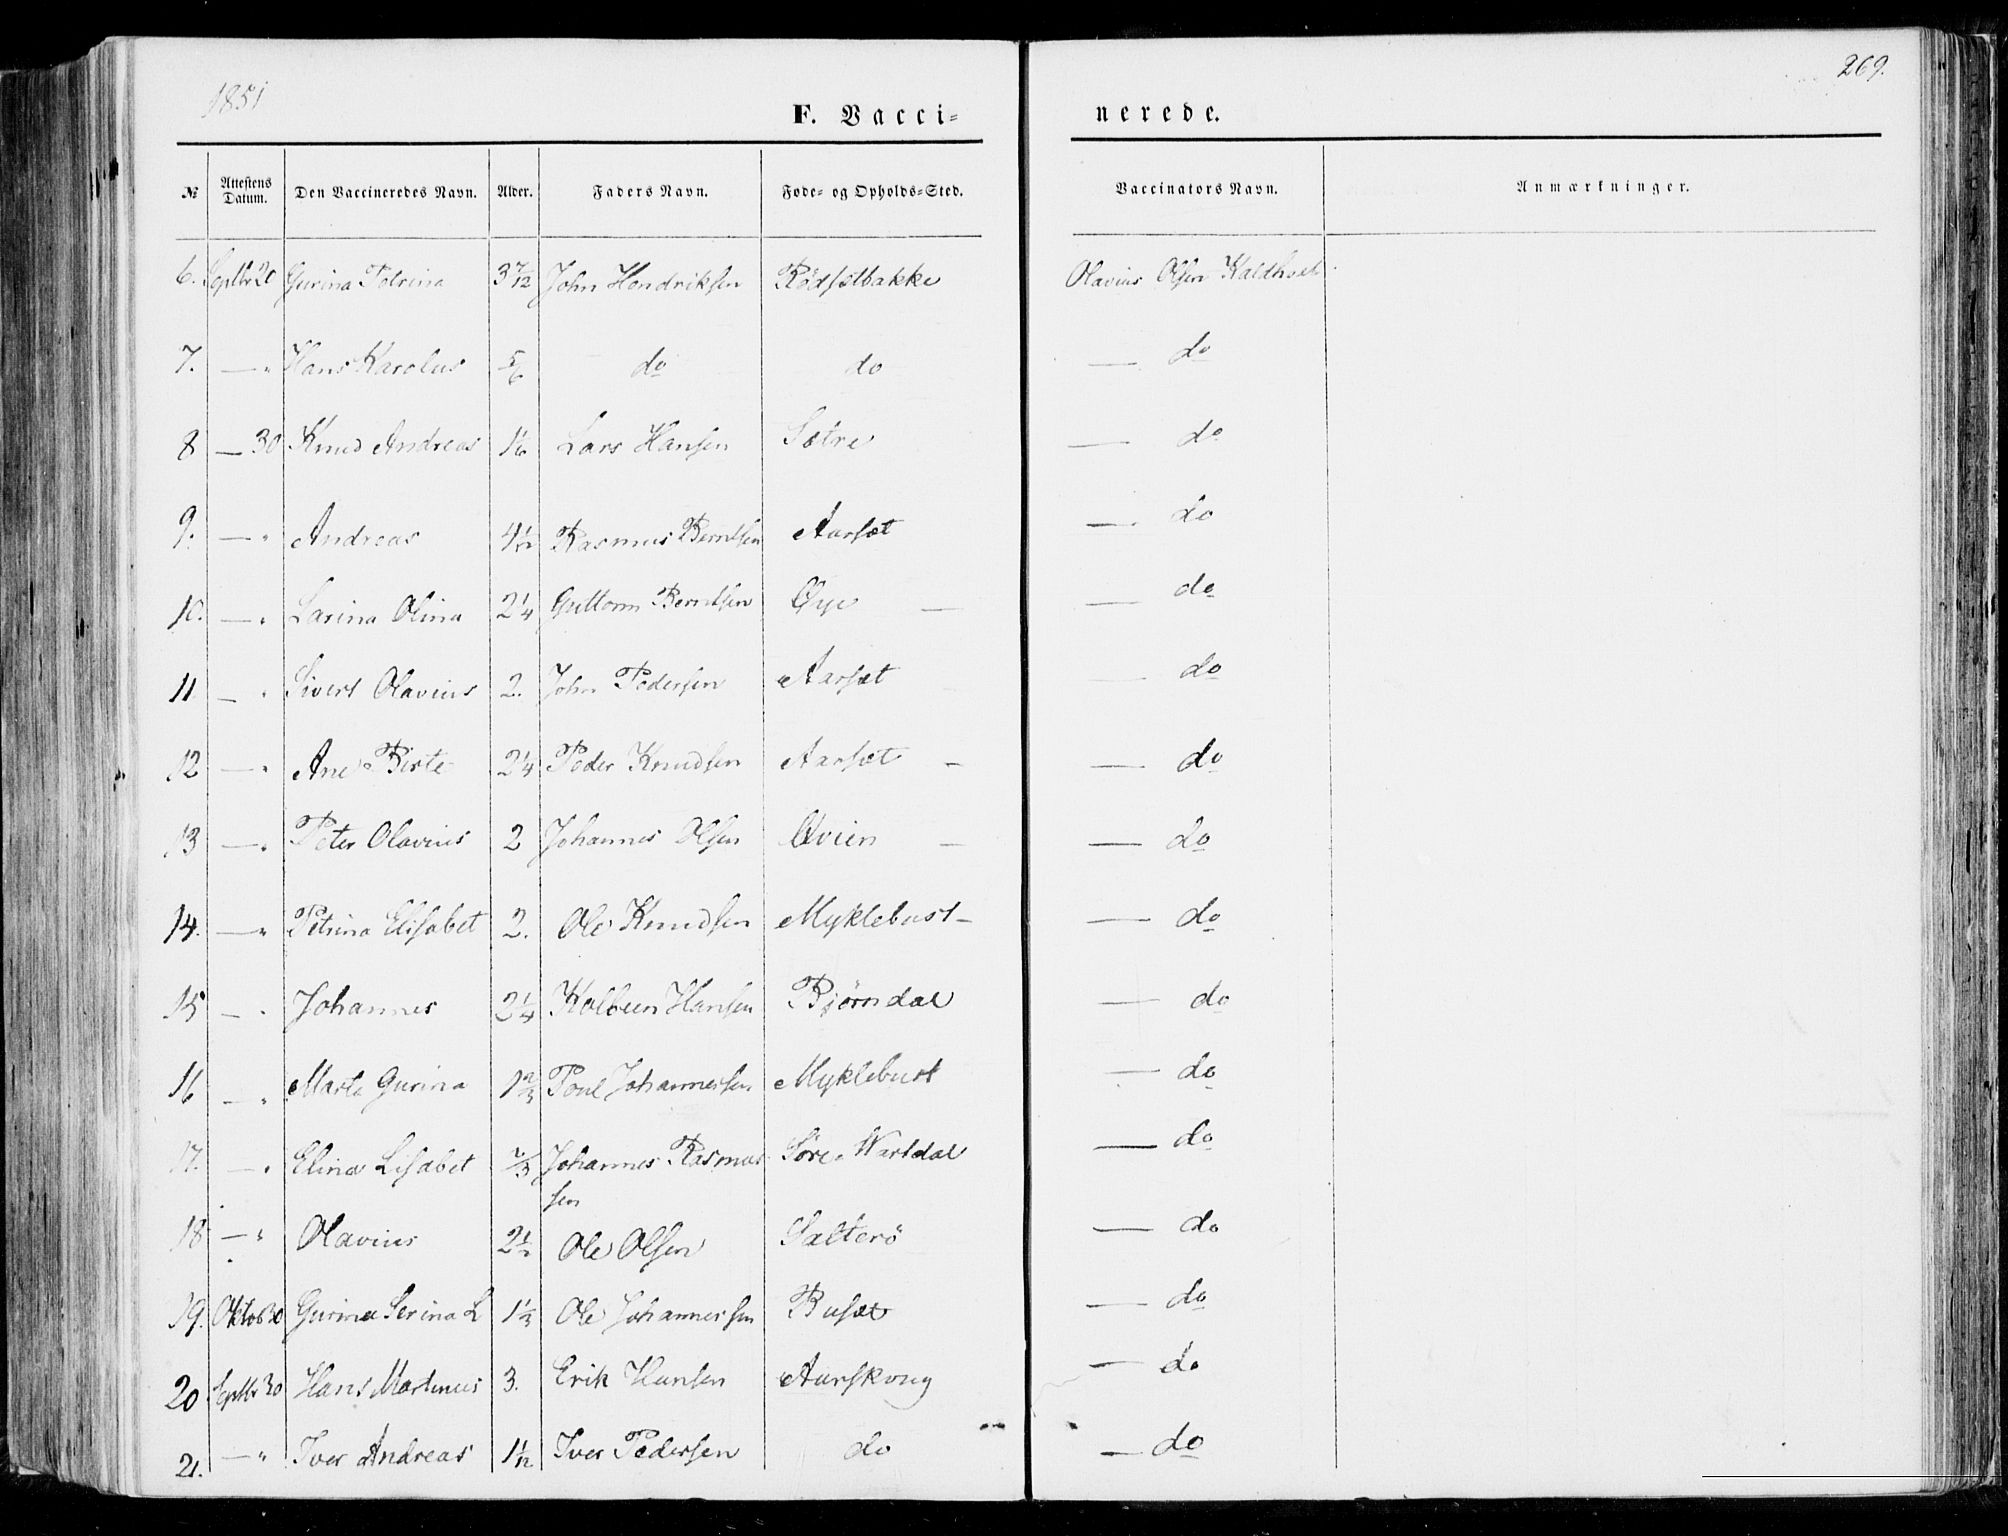 1851
269.
F. Vacci=
nerede.
№ Attestens Datum. Den Vaccineredes Navn. Alder. Faders Navn. Føde- og Opholds-Sted. Vaccinators Navn. Anmærkninger.
6. Septbr 20 Gurina Petrina 3 7/12 John Hendriksen Rödsetbakke Olavius Olsen Kaldhoel
7. — " Hans Karolus 5/6 do do — do
8 — 30 Knud Andreas 1 1/6 Lars Hansen Sætre — do
9. — " Andreas 4 1/12 Rasmus Berntsen Aarset — do
10. — " Larina Olina 2 1/4 Guttorm Berntsen Øye — — do
11 — " Sivert Olavius 2. John Pedersen Aarset — do
12 — " Ane Birte 2 1/4 Peder Knudsen Aarset — — do
13 — " Peter Olavius 2 Johannes Olsen Qvien — — do
14. — " Petrina Elisabet 2. Ole Knudsen Myklebust — — do
15 — " Johannes 2 1/4 Kolbeen Hansen Bjørndal — do
16 — " Marte Gurina 1 2/3 Poul Johannessen Myklebust — do
17. — " Elina Lisabet 2/3 Johannes Rasmus Søre Vartdal — do
sen
18 — " Olavius 2 1/2 Ole Olsen Salterö — do
19. Oktob 30 Gurina Serina L 1 1/3 Ole Johannessen Buset — do
20 Septbr 30 Hans Martinus 3. Erik Hansen Aarskoug — do
21. — " Iver Andreas 1 1/12 Iver Pedersen do — do